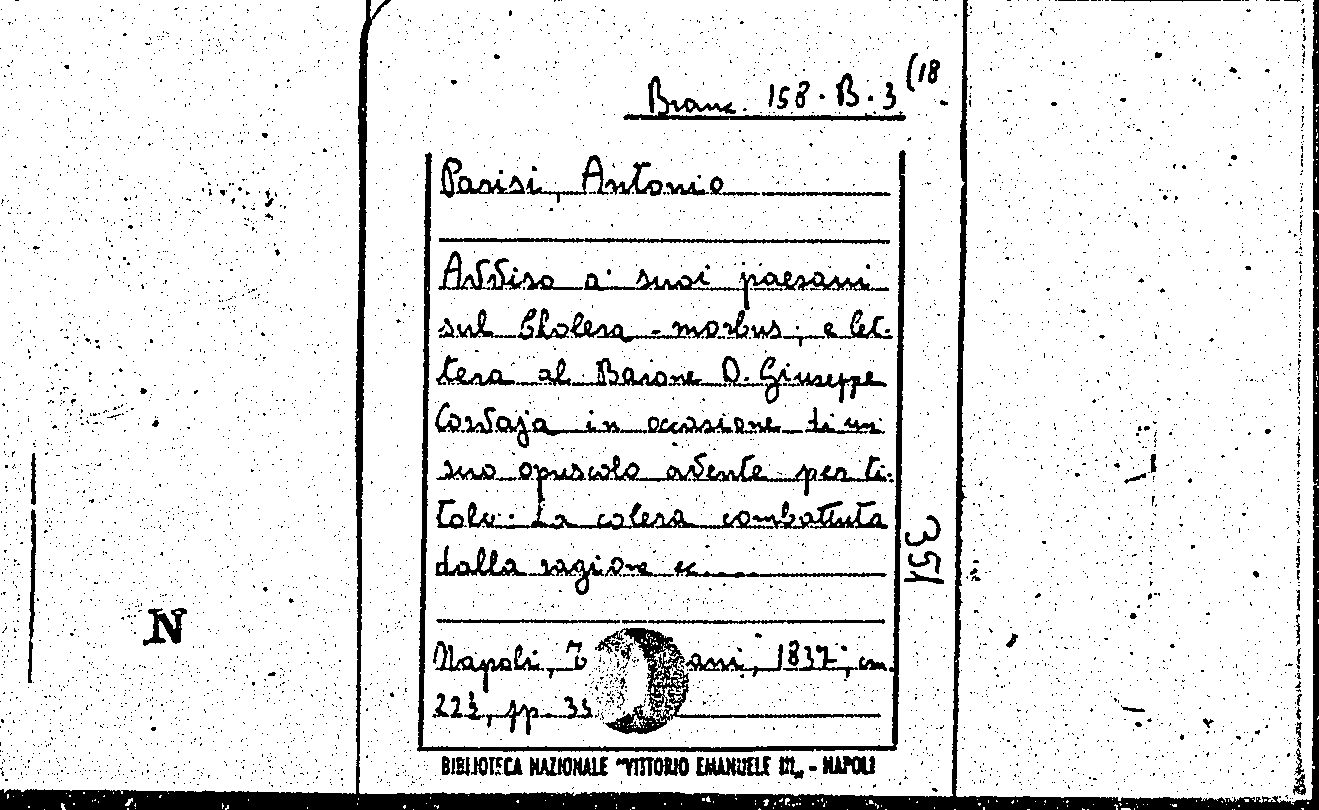 Branc. 158. B. 3 (18
Parisi, Antonio
Avviso a' suoi paesani
sul Cholera-morbus; e let-
tera al Barone D. Giuseppe
Corvaja in occasione di un
suo opuscolo avente per ti-
tolo: La colera combattuta
dalla ragione ec.....
351
N
Napoli, ani, 1837; cm.
22½, pp. 33
BIBLIOTECA NAZIONALE "VITTORIO EMANUELE III" - NAPOLI